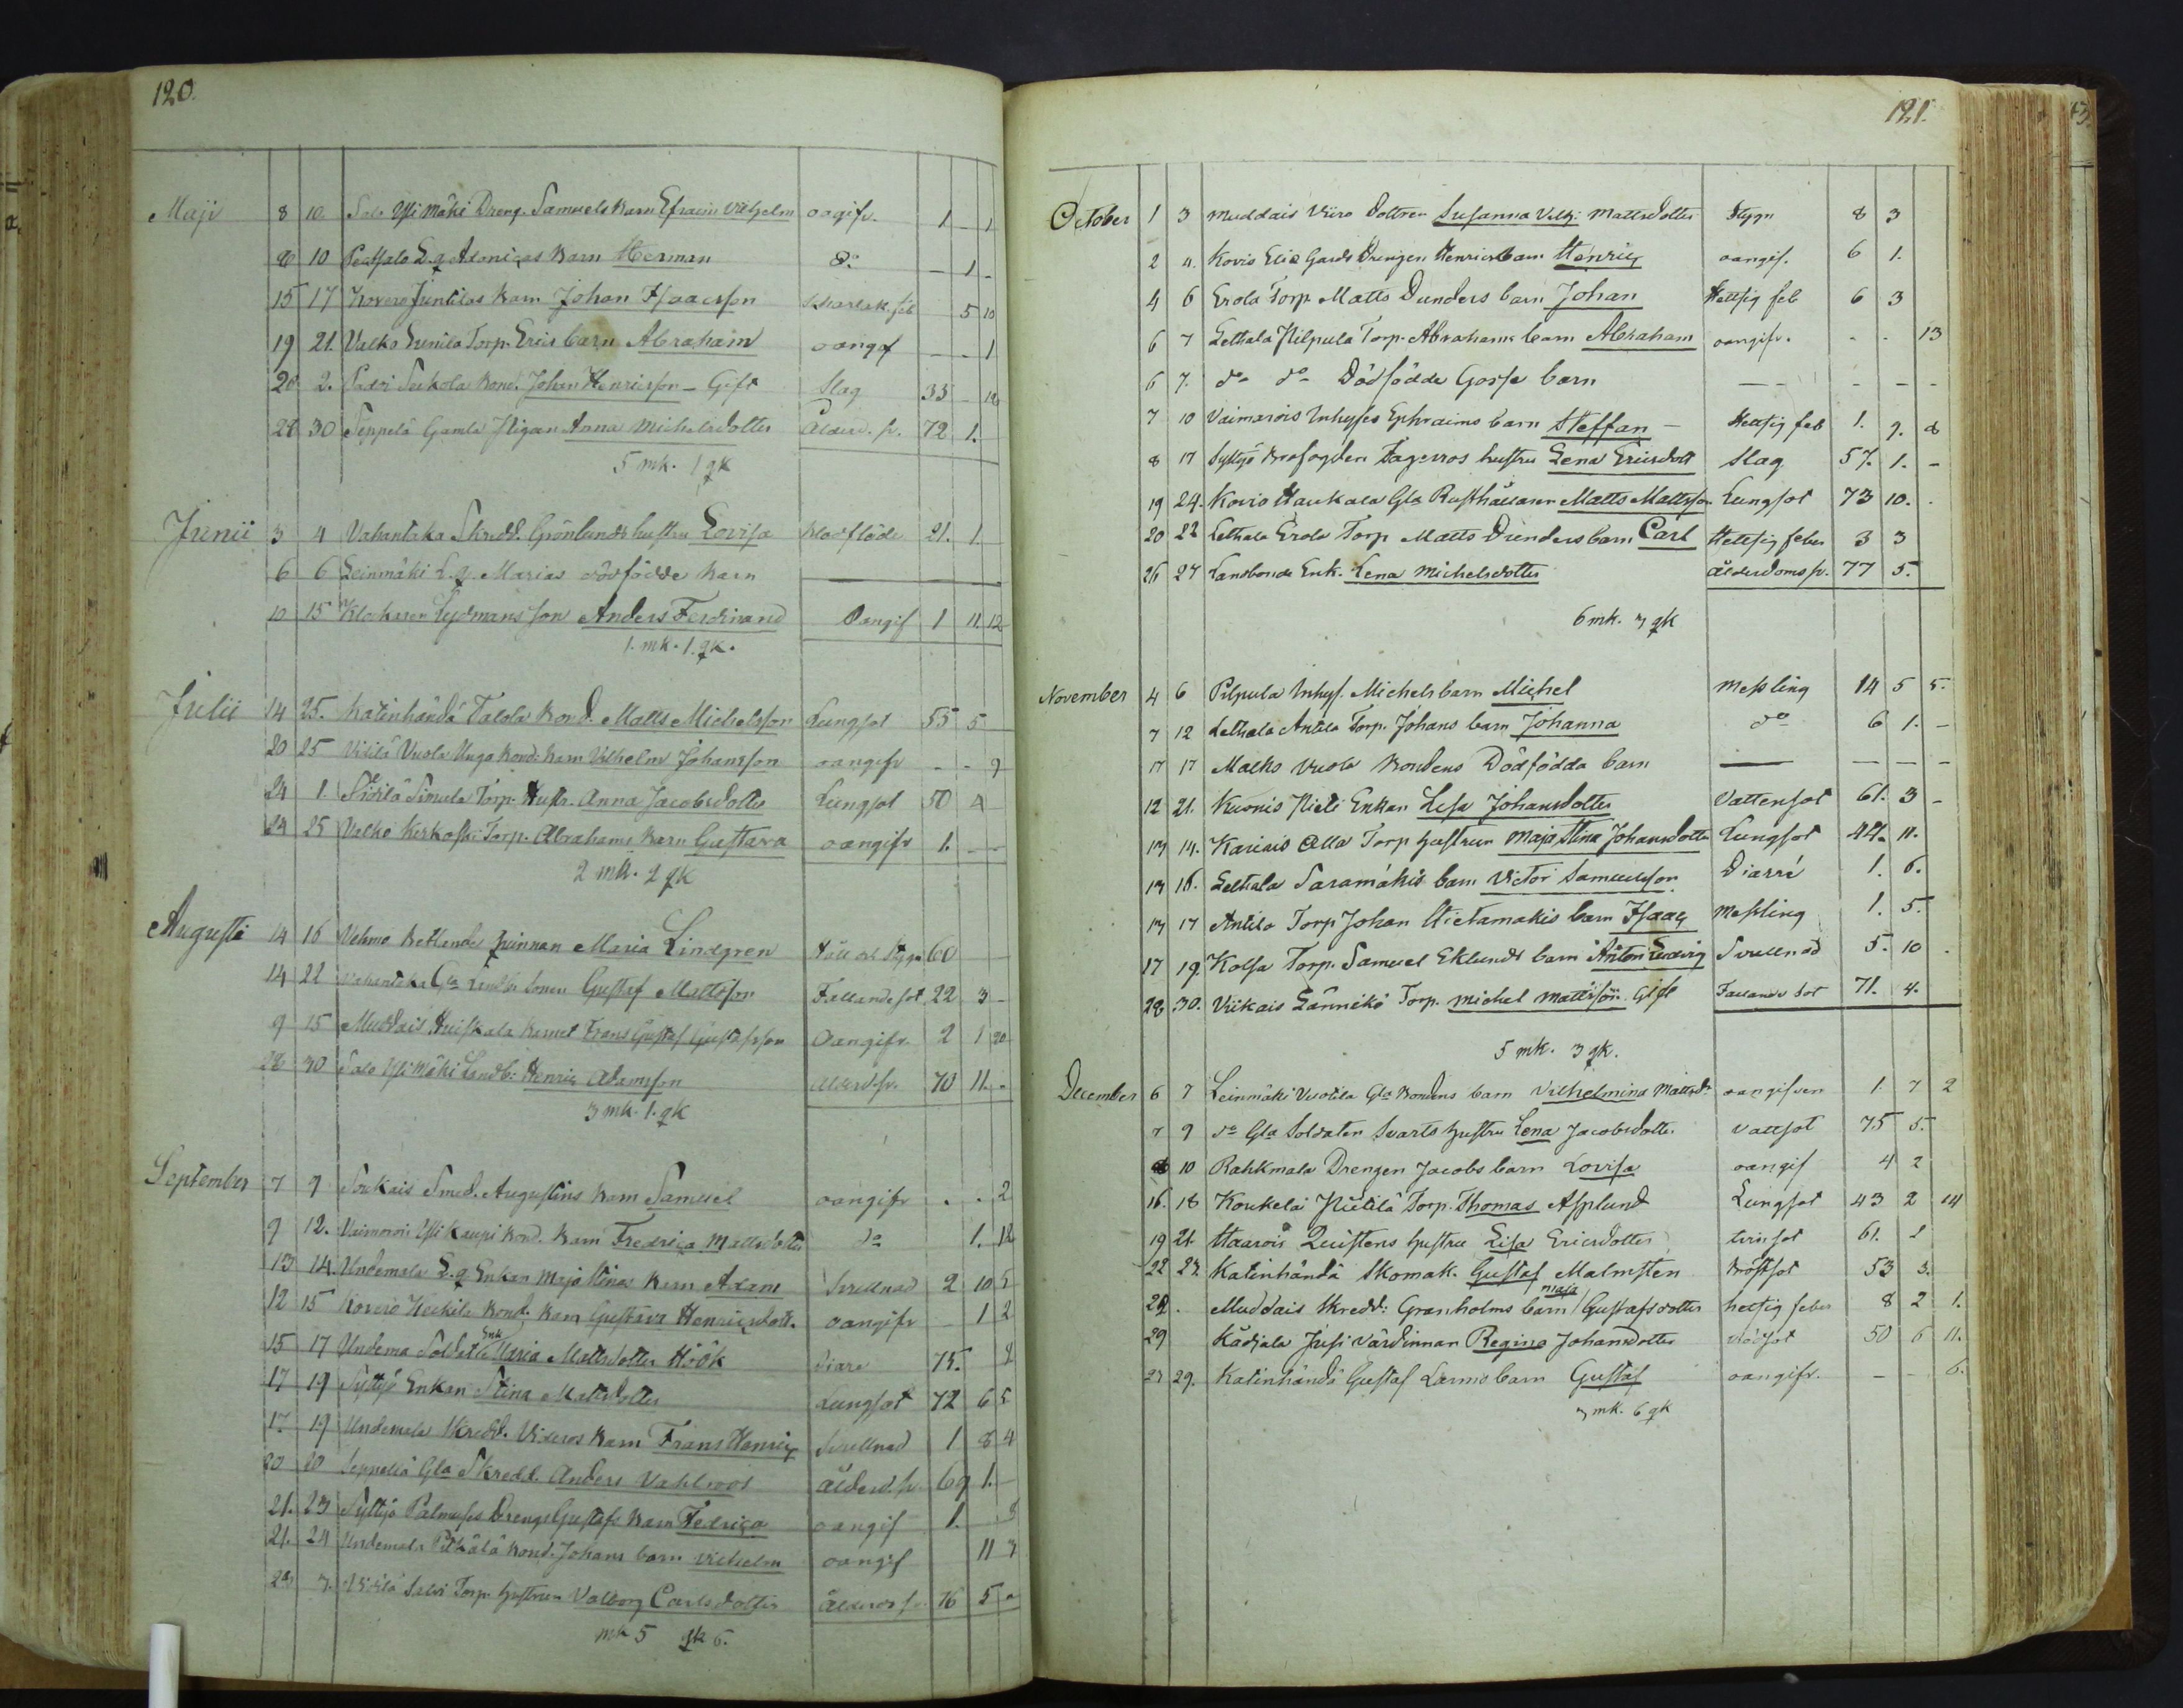 120.
Maji 8 10. Salo Yli Mäki Dreng. Samuels Barn Efraim Vilhelm oagifv. 1 - 1
8 10 L.q. Barn Herman do - 1 -
15 17 Kovero Juntilas Barn Johan Isaacsson Scharlak. feb 5 10
19 21. Valko Torp. Erics barn Abraham oangif - - 1
20 2. Seekola Bond. Johan Henricsson - Gift Slag 35 - 12
28 30 Seppelä Gamla Pigan Anna Michelsdotter Ålderd. sv. 72 1.
5 mk. 1 qk
Junii 3 4 Vahantaka Skredd. Grönlunds hustru Lovisa Blodflöde 21. 1.
6 6 Leinmäki L.q. Marias dödfödde Barn
10 15 Klockaren Lydmans son Anders Ferdinand Oangif 1 11. 12
1. mk. 1. qk.
Julii 14 25. Katinhändä Talola Bond. Matts Michelsson Lungsot 55 5
20 25 Vuola Unga Bond. Barn Vilhelm Johansson oangifv - - 9
24 1. Simula Torp. Hustr. Anna Jacobsdotter Lungsot 50 4
24 25 Valko Torp. Abrahams Barn Gustava oangifv 1. - -
2 mk. 2 qk
Augusti 14 16 Vehmo qvinnan Maria Lindgren Håll och Stygn 60
14 22 Vahantaka Gla Sonen Gustaf Mattsson Fallandesot 22 3 -
9 15 Muddais Huiskala Barnet Frans Gustaf Gustafsson Oangifv. 2 1 20
28 30 Salo Yli Mäki Landb: Henric Adamsson Alderd. sv. 70 11. -
3 mk. 1. qk
September 7 9 Smed. Augustins Barn Samuel oangifv . . 2
9 12. Vaimarois Yli Kaupi Bond. Barn Fredrica Mattsdotter do 1. 12
13 14. Undemala L.q. Enkan Maja Stinas Barn Adam Svullnad 2 10 5
12 15 Kovero Heikilä Bond. Barn Gustava Henricsdott. oangifv - 1 2
15 17 Undema Soldat Enk Maria Mattsdotter Höök diare 75. 8
17 19 Syttyö Enkan Stina Mattsdotter Lungsot 72 6 5
17 19 Undemala Skredd. Barn Frans Henric Svullnad 1 8 4
20 20 Seppelä Gla Skredd. Anders Vahlroos Ålderd. sv. 69 1.
21. 23 Syttyö Drengs Gustafs Barn Fedrica oangif 1. 8
21. 24 Undemala Pitkälä Bond. Johans barn Vilhelm oangif 11 3
29 7. Torp. hustrun Valborg Carlsdotter Ålderds sv. 76 5 -
mk 5 qk 6.
121.
October 1 3 Muddais Viiro dottren Susanna Vilh: Mattsdotter Stygn 8 3
2 4. Kovio Elis Gards Drengen Henrics barn Henric oangif. 6 1.
4 6 Erola Torp. Matts Dunders barn Johan Hettsig feb 6 3
6 7 Lethala Pilpula Torp. Abrahams barn Abraham oangifv. - - 13
6 7. do do Dödfödde Gosse barn - - - -
7 10 Vaimarois Inhyses Ephraims barn Steffan - Hettsig feb 1. 9. 8
8 17 Syttyö Brofogden Fagerros hustru Lena Ericsdott Slag 57. 1. -
19 24. Kovio Haukala Gla Rusthållaren Matts Mattsson Lungsot 73 10. .
20 22 Lethala Erola Torp Matts Dunders barn Carl Hettsig feber 3 3
26 27 Landbonde Enk. Lena Michelsdotter Ålderdoms sv. 77 5.
6 mk. 3 qk
November 4 6 Pilpula Inhys. Michels barn Michel Messling 14 5 5.
7 12 Lethala Antila Torp. Johans barn Johanna do 6 1. -
17 17 Malko Vuola Bondens Dödfödda barn - - -
12 21. Kuonis Pieti Enkan Lisa Johansdotter Vattensot 61. 3 -
13 14. Kariais Alla Torp hustrun Maja Stina Johansdotter Lungsot 44. 11.
13 16. Lethala Saramäkis barn Victor Samuelsson Diarré 1. 6.
13 17 Antila Torp Johan Hietamakis barn Isaac Messling 1. 5.
17 19. Kolsa Torp. Samuel Eklunds barn Anton Ludvig Svullnad 5. 10 .
28 30. Viikais Torp. Michel Mattsson Gift Fallande Sot 71. 4.
5 mk. 3 qk.
December 6 7 Leinmäki Vuotila Gla Bondens barn Vilhelmina Mattsdr oangifven 1. 7 2
7 9 do Gla Soldaten Svarts hustru Lena Jacobsdotter Vattsot 75 5.
10 Rahkmala Drengen Jacobs barn Lovisa oangif 4 2
16. 18 Koukelai Torp. Thomas Asplund Lungsot 43 2 14
19 21. Haarois Quistens hustru Lisa Ericsdotter tvinsot 61. 1
22 27. Katinhändä Skomak. Gustaf Malmsten Bröstsot 53 3.
29 . Muddais Skredd: Granholms barn Maja Gustafsdotter hetsig feber 8 2 1.
29 Kådjala Jusi Värdinnan Regina Johansdotter 50 6 11.
27 29. Katinhändä Gustaf barn Gustaf oangifv. - - 6.
3 mk. 6 qk